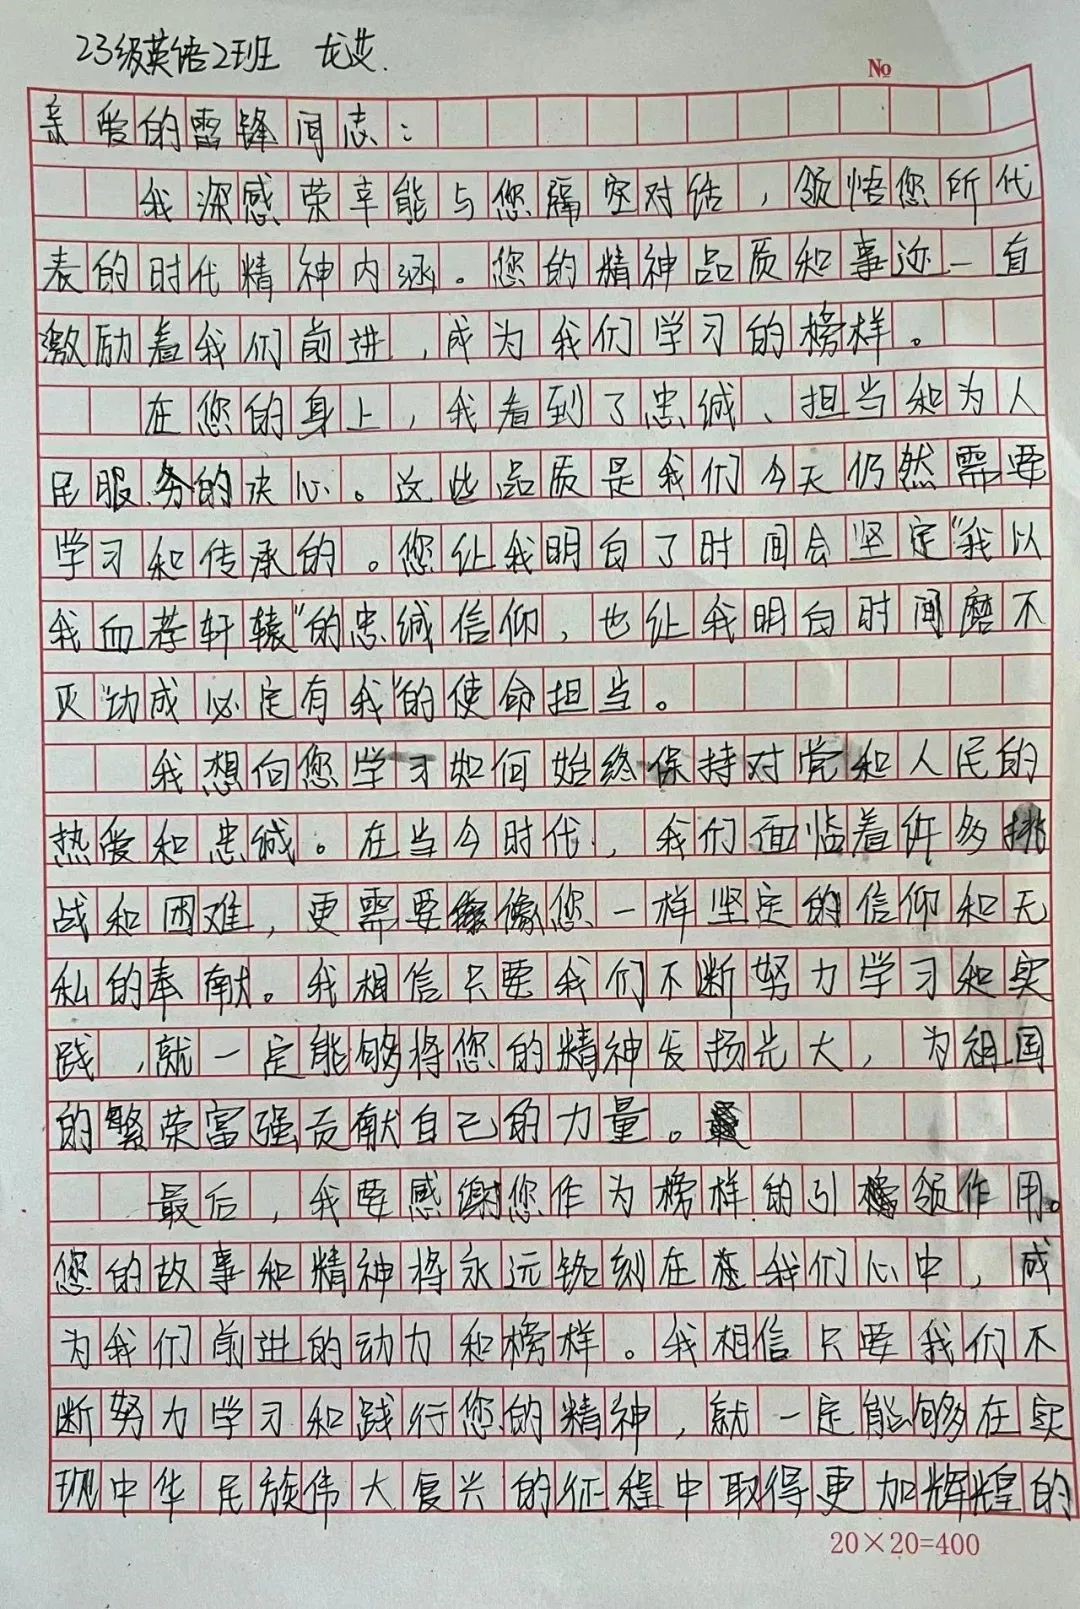 23级英语2班 龙艾.
№
亲爱的雷锋同志：
我深感荣幸能与您隔空对话，领悟您所代
表的时代精神内涵。您的精神品质和事迹一直
激励着我们前进，成为我们学习的榜样。
在您的身上，我看到了忠诚、担当和为人
民服务的决心。这些品质是我们今天仍然需要
学习和传承的。您让我明白了时间会坚定“我以
我血荐轩辕”的忠诚信仰，也让我明白时间磨不
灭“功成必定有我”的使命担当。
我想向您学习如何始终保持对党和人民的
热爱和忠诚。在当今时代，我们面临着许多挑
战和困难，更需要像您一样坚定的信仰和无
私的奉献。我相信只要我们不断努力学习和实
践，就一定能够将您的精神发扬光大，为祖国
的繁荣富强贡献自己的力量。
最后，我要感谢您作为榜样的引领作用。
您的故事和精神将永远铭刻在我们心中，成
为我们前进的动力和榜样。我相信只要我们不
断努力学习和践行您的精神，就一定能够在实
现中华民族伟大复兴的征程中取得更加辉煌的
20×20=400